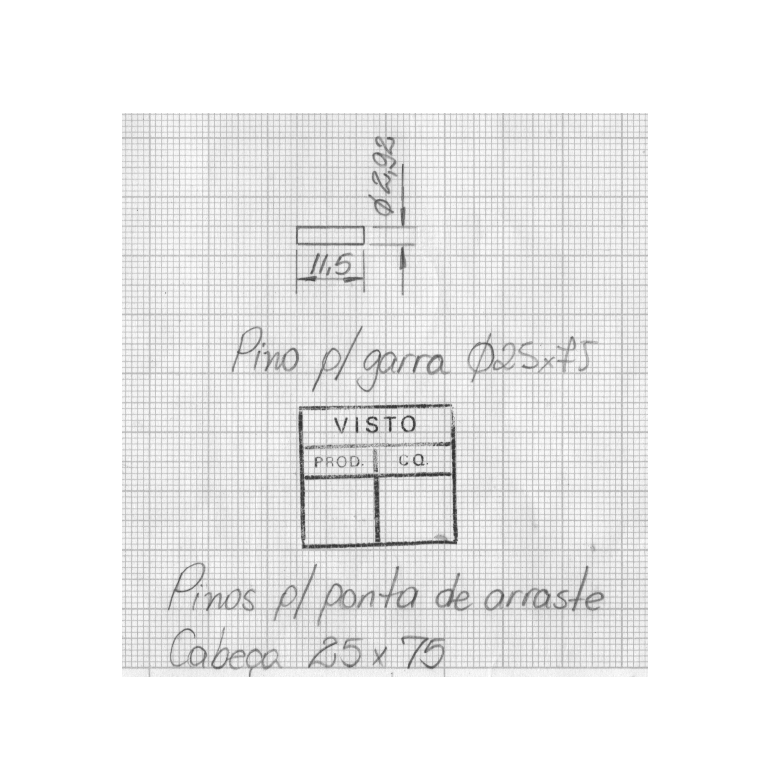 φ2,92
11,5
Pino p/ garra φ25x75
VISTO
PROD. CQ.
Pinos p/ ponta de arraste
Cabeça 25 x 75